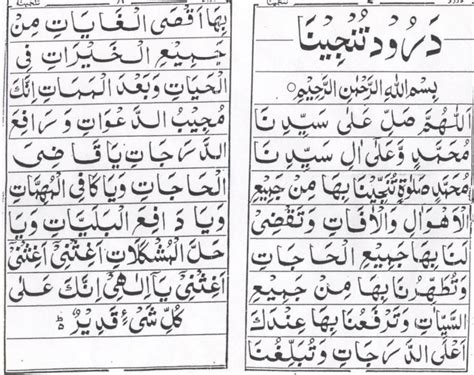 دَرُود تُنَجِّينَا
بِسْمِ اللهِ الرَّحْمٰنِ الرَّحِيْمِ ○
اَللّٰهُمَّ صَلِّ عَلٰى سَيِّدِنَا
مُحَمَّدٍ وَّعَلٰى اٰلِ سَيِّدِنَا
مُحَمَّدٍ صَلٰوةً تُنَجِّيْنَا بِهَا مِنْ جَمِيْعِ
الْاَهْوَالِ وَالْاٰفَاتِ وَتَقْضِيْ
لَنَا بِهَا جَمِيْعَ الْحَاجَاتِ
وَتُطَهِّرُنَا بِهَا مِنْ جَمِيْعِ
السَّيِّاٰتِ وَتَرْفَعُنَا بِهَا عِنْدَكَ
اَعْلَى الدَّرَجَاتِ وَتُبَلِّغُنَا
بِهَا اَقْصَى الْغَايَاتِ مِنْ
جَمِيْعِ الْخَيْرَاتِ فِى
الْحَيَاتِ وَبَعْدَ الْمَمَاتِ اِنَّكَ
مُجِيْبُ الدَّعَوَاتِ وَرَافِعُ
الدَّرَجَاتِ يَا قَاضِىَ
الْحَاجَاتِ وَيَا كَافِىَ الْمُهِمَّاتِ
وَيَا دَافِعَ الْبَلِيَّاتِ وَيَا
حَلَّ الْمُشْكِلَاتِ اَغِثْنِىْ اَغِثْنِىْ
اَغِثْنِىْ يَآ اِلٰهِىْ اِنَّكَ عَلٰى
كُلِّ شَىْءٍ قَدِيْرٌ